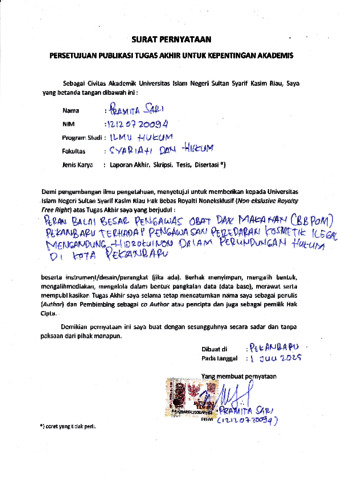 SURAT PERNYATAAN
PERSETUJUAN PUBLIKASI TUGAS AKHIR UNTUK KEPENTINGAN AKADEMIS
Sebagai Civitas Akademik Universitas Islam Negeri Sultan Syarif Kasim Riau, Saya
yang bertanda tangan dibawah ini :
Nama : PRAMITA SARI
NIM : 12120720094
Program Studi : ILMU HUKUM
Fakultas : SYARIAH DAN HUKUM
Jenis Karya : Laporan Akhir, Skripsi, Tesis, Disertasi *)
Demi pengembangan ilmu pengetahuan, menyetujui untuk memberikan kepada Universitas
Islam Negeri Sultan Syarif Kasim Riau Hak Bebas Royalti Noneksklusif (Non ekslusive Royalty
Free Right) atas Tugas Akhir saya yang berjudul :
PERAN BALAI BESAR PENGAWAS OBAT DAN MAKANAN (BBPOM)
PEKANBARU TERHADAP PENGAWASAN PEREDARAN KOSMETIK ILEGAL
MENGANDUNG HIDROKUINON DALAM PERUNDANGAN HUKUM
DI KOTA PEKANBARU
beserta instrumen/desain/perangkat (jika ada). Berhak menyimpan, mengalih bentuk,
mengalihmediakan, mengelola dalam bentuk pangkalan data (data base), merawat serta
mempublikasikan Tugas Akhir saya selama tetap mencantumkan nama saya sebagai penulis
(Author) dan Pembimbing sebagai co Author atau pencipta dan juga sebagai pemilik Hak
Cipta.
Demikian pernyataan ini saya buat dengan sesungguhnya secara sadar dan tanpa
paksaan dari pihak manapun.
Dibuat di : PEKANBARU
Pada tanggal : 1 JULI 2025
Yang membuat pernyataan
PRAMITA SARI
NIM (12120720094)
*) coret yang tidak perlu